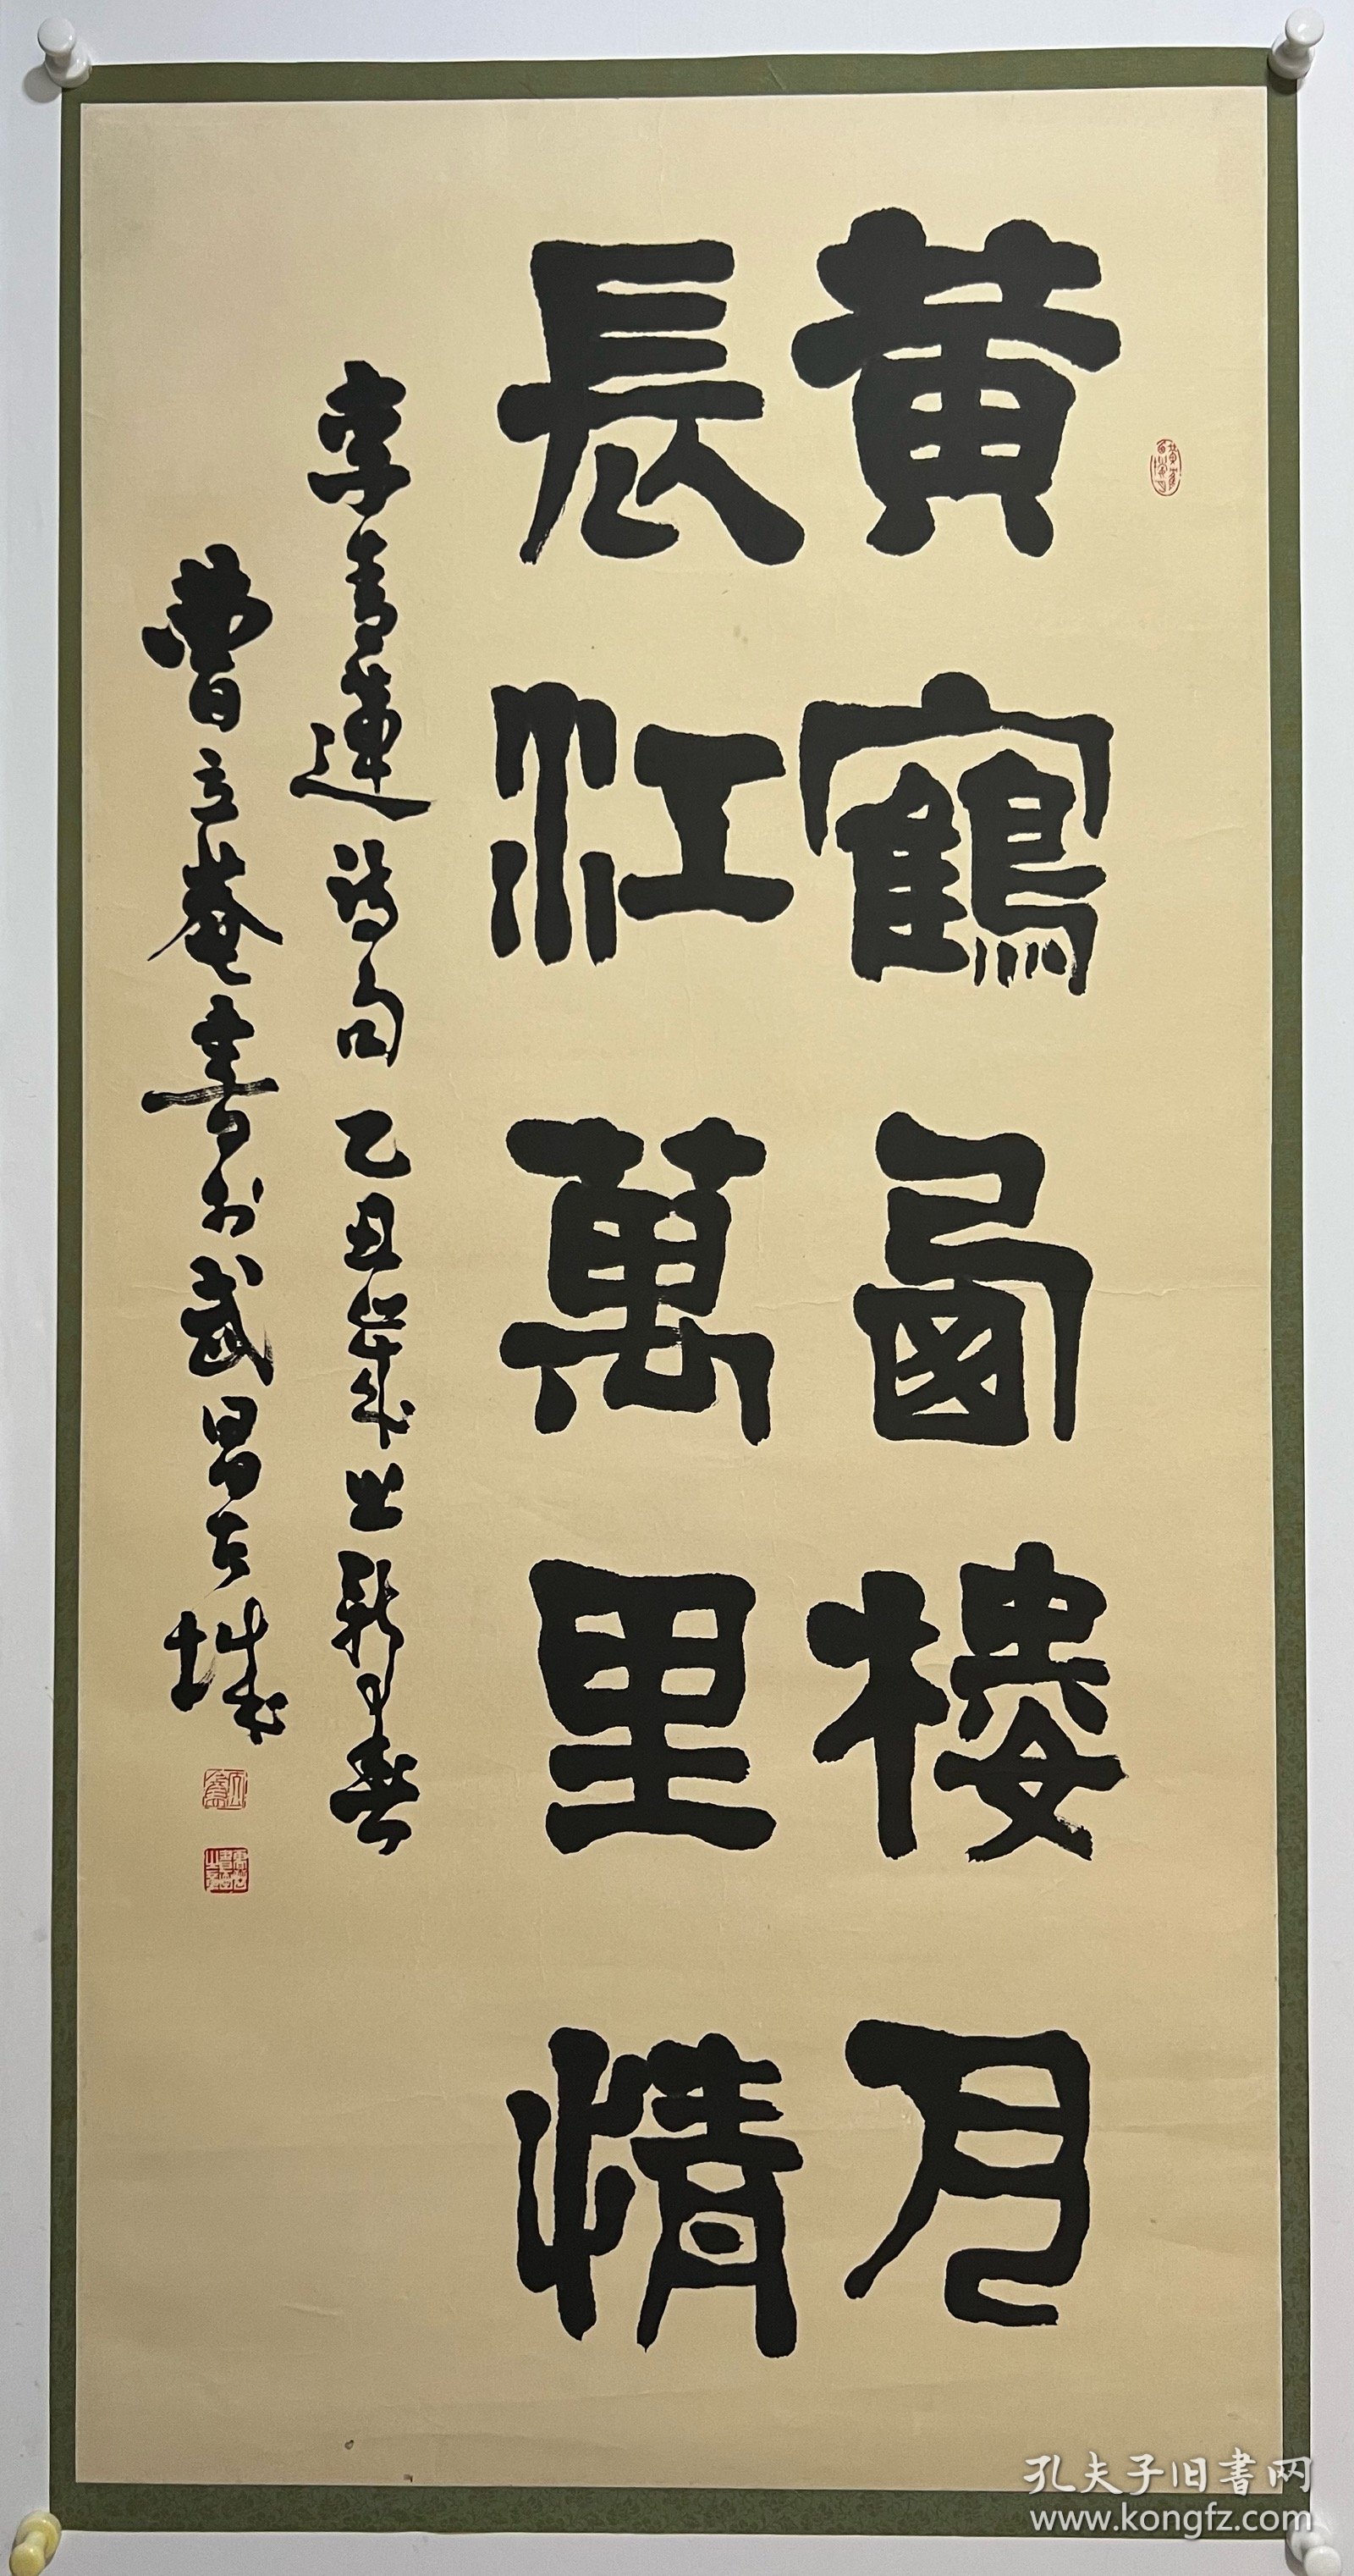 黄鶴西樓月
長江萬里情
李青蓮詩句乙丑歲之新春
曹立菴書於武昌古城
孔夫子旧書网
www.kongfz.com